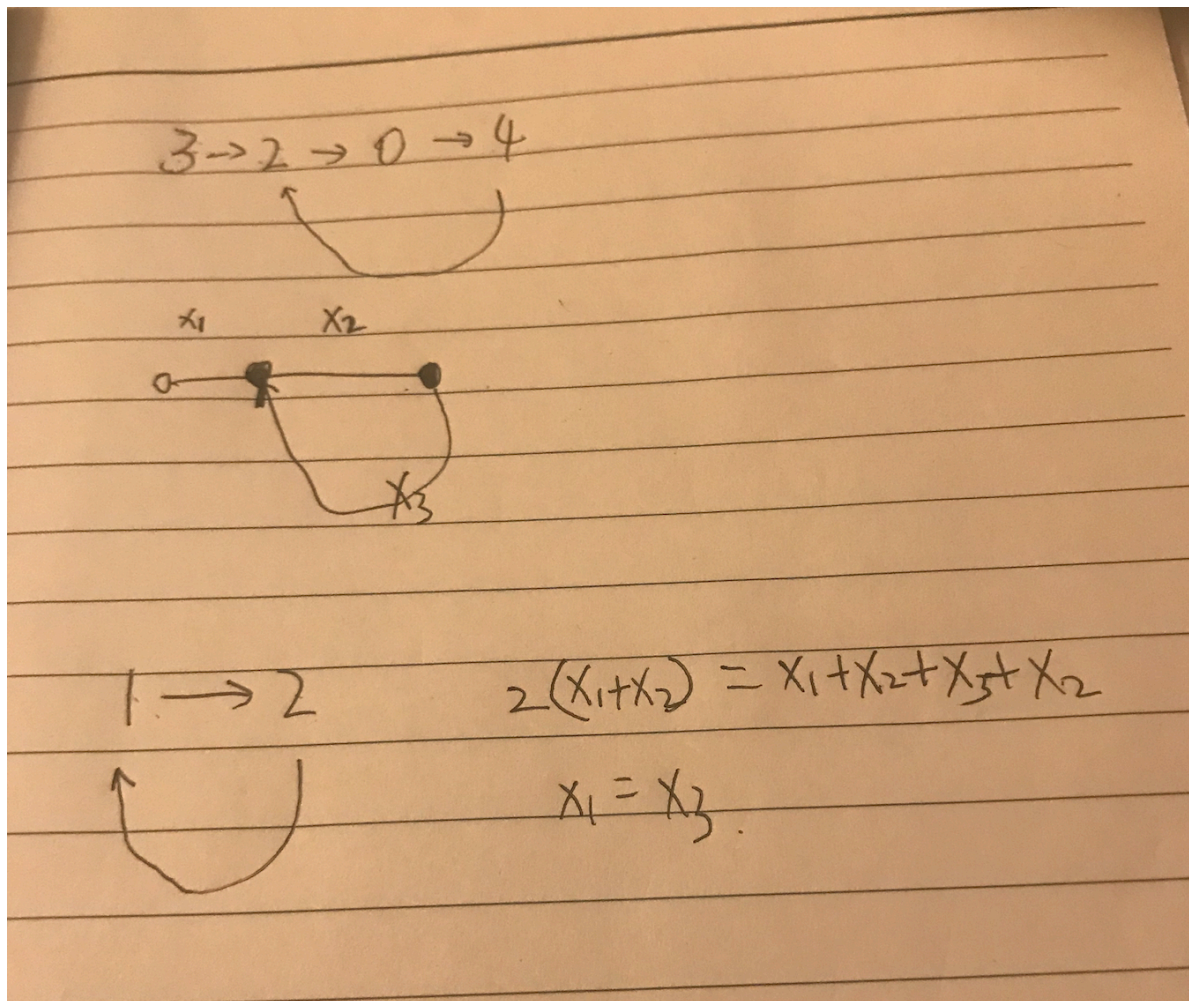 3→2→0→4
x₁ x₂
x₃
1→2
2(x₁+x₂) = x₁+x₂+x₃+x₂
x₁ = x₃.